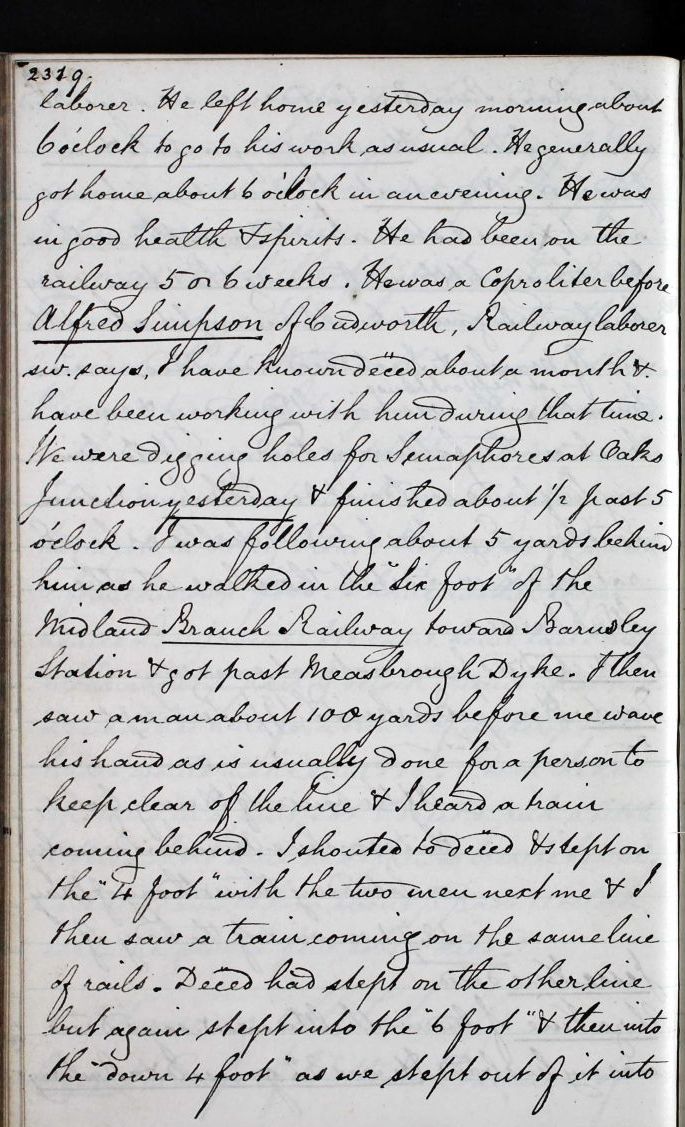 2319.
laborer. He left home yesterday morning about
6 o'clock to go to his work as usual. He generally
got home about 6 o'clock in an evening. He was
in good health & spirits. He had been on the
railway 5 or 6 weeks. He was a Coproliter before
Alfred Simpson of Cudworth, Railway laborer
sw. says, I have known deċed about a month &
have been working with him during that time.
We were digging holes for Semaphores at Oaks
Junction yesterday & finished about 1/2 past 5
o'clock. I was following about 5 yards behind
him as he walked in the "Six foot" of the
Midland Branch Railway toward Barnsley
Station & got past Measbrough Dyke. I then
saw a man about 100 yards before me wave
his hand as is usually done for a person to
keep clear of the line & I heard a train
coming behind. I shouted to deċed & stept on
the "4 foot" with the two men next me & I
then saw a train coming on the same line
of rails. Deċed had stept on the other line
but again stept into the "6 foot" & then into
the "down 4 foot" as we stept out of it into